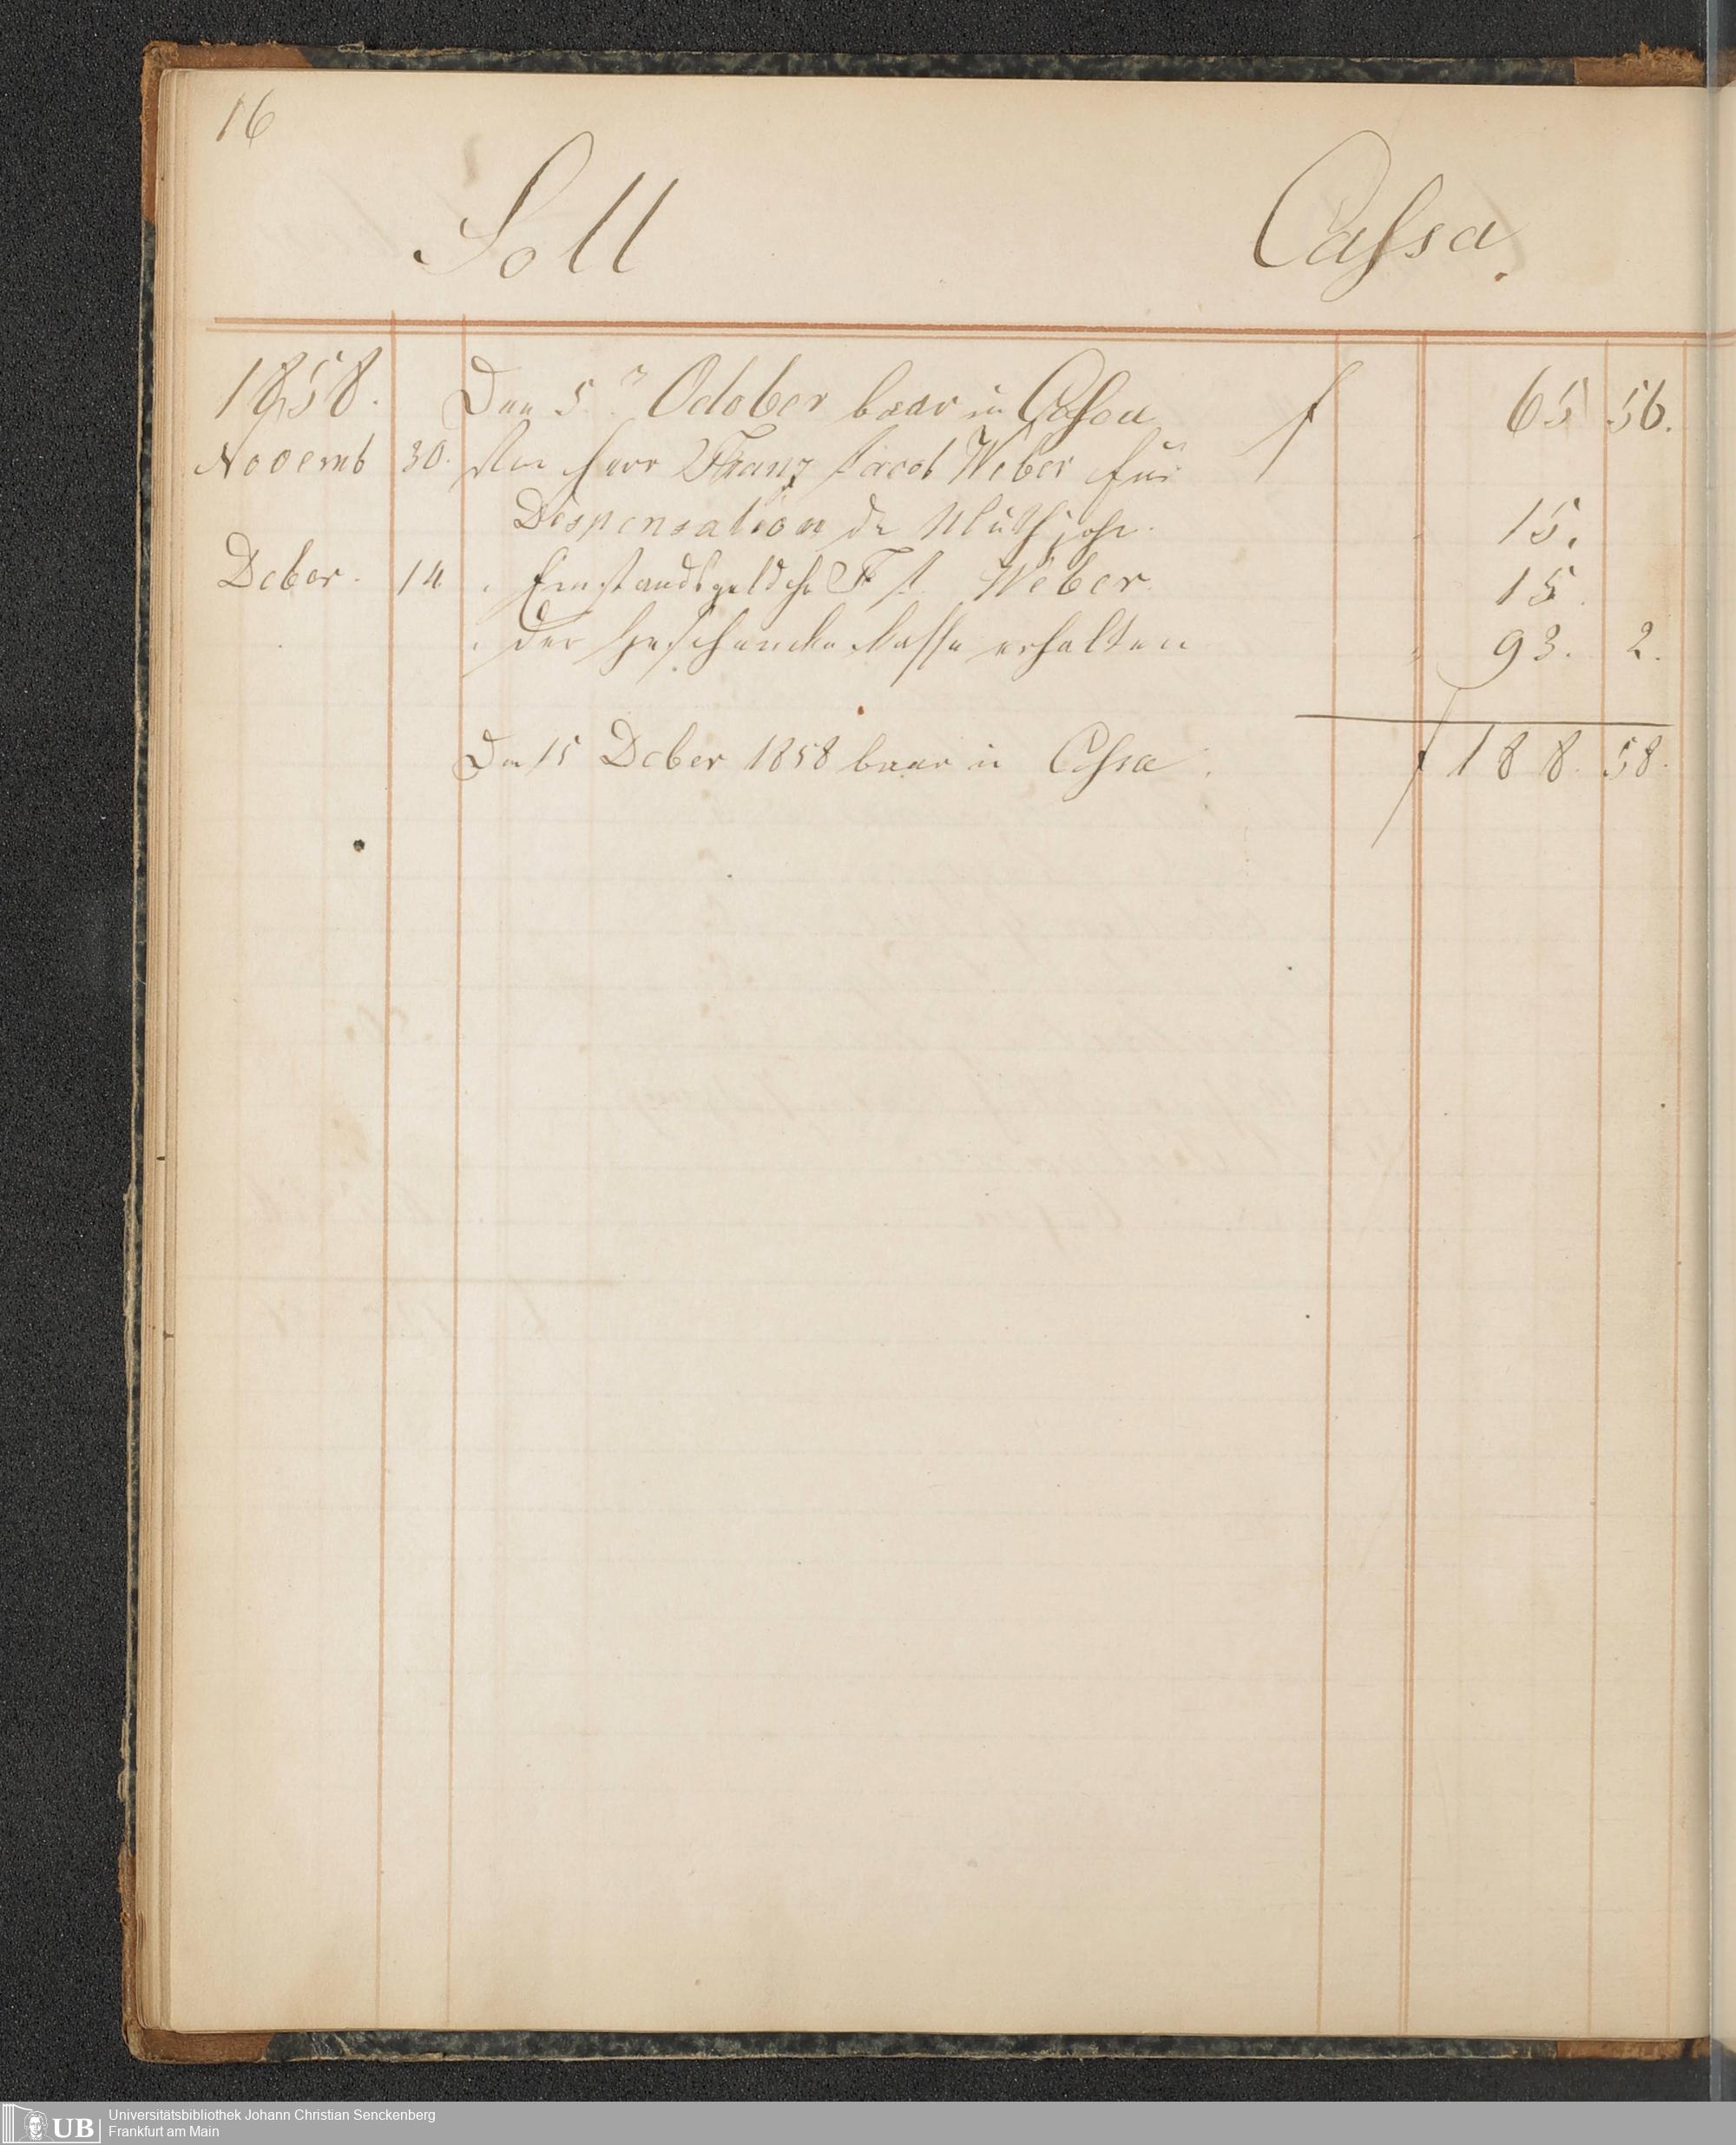 16
Soll Cassa.
1858. Den 5n October baar in Cassa f 65 56.
Novemb 30. Von Herr Franz Jacob Weber für
Dispensation de Muthjahr. 15.
Deber. 14 " Einstandsgeld F J. Weber. 15.
" der Geschenke Kasse erhalten 93. 2.
Den 15 Deber 1858 baar in Cassa. f 188. 58.
UB Universitätsbibliothek Johann Christian Senckenberg
Frankfurt am Main